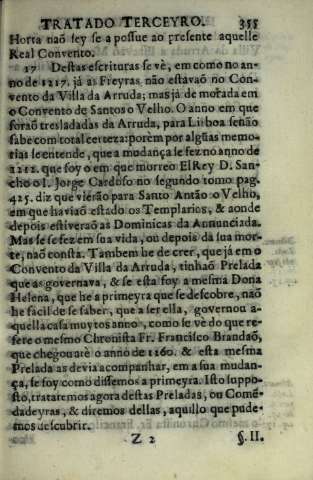 TRATADO TERCEYRO. 355
Horta naõ sey se a possue ao presente aquelle
Real Convento.
17 Destas escrituras se vè, em como no an-
no de 1217. já as Freyras não estavaõ no Con-
vento da Villa da Arruda; mas já de morada em
o Convento de Santos o Velho. O anno em que
foraõ tresladadas da Arruda, para Lisboa se naõ
sabe com total certeza: porèm por algũas memo-
rias se entende, que a mudança se fez no anno de
1212. que foy o em que morreo ElRey D. San-
cho o I. Jorge Cardoso no segundo tomo pag.
425. diz que vieraõ para Santo Antão o Velho,
em que haviaõ estado os Templarios, & aonde
depois estiveraõ as Dominicas da Annunciada.
Mas se se fez em sua vida, ou depois da sua mor-
te, naõ consta. Tambem he de crer, que já em o
Convento da Villa da Arruda, tinhaõ Prelada
que as governava, & se esta foy a mesma Dona
Helena, que he a primeyra que se descobre, naõ
he facil de se saber, que a ser ella, governou a-
quella casa muytos annos, como se vè do que re-
fere o mesmo Chronista Fr. Francisco Brandaõ,
que chegou atè o anno de 1260. & esta mesma
Prelada as devia acompanhar, em a sua mudan-
ça, se foy como dissemos a primeyra. Isto suppo-
sto, trataremos agora destas Preladas, ou Comẽ-
dadeyras, & diremos dellas, aquillo que pude-
mos descubrir.
Z 2 §. II.